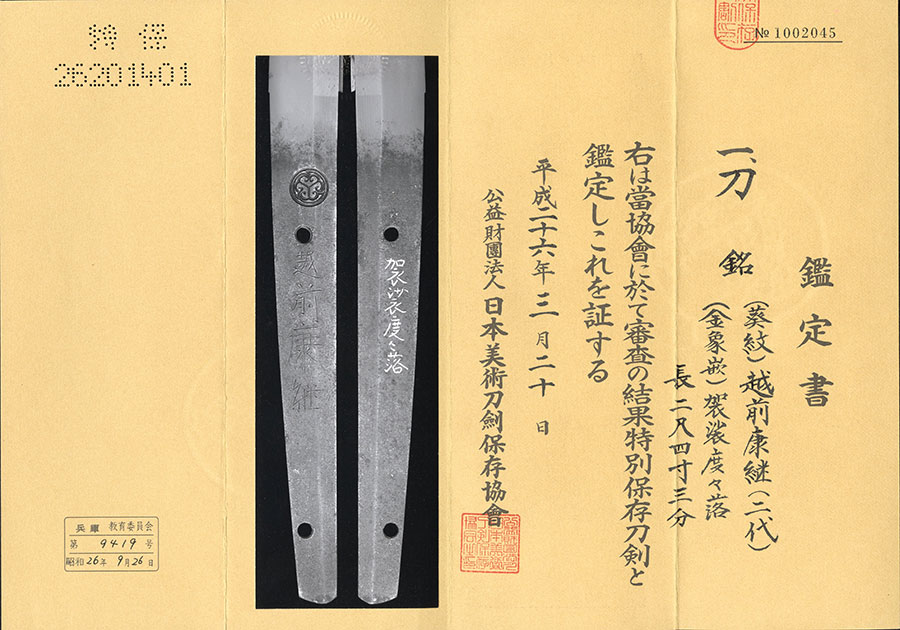 № 1002045
鑑定書
一、刀 銘 (葵紋)越前康継(二代)
(金象嵌)袈裟度々落
長二尺四寸三分
右は當協會に於て審査の結果特別保存刀剣と
鑑定しこれを証する
平成二十六年三月二十日
公益財團法人日本美術刀剣保存協會
越前康継
袈裟度々落
特保
26201401
兵庫 教育委員会
第 9419 号
昭和 26年 9月26日